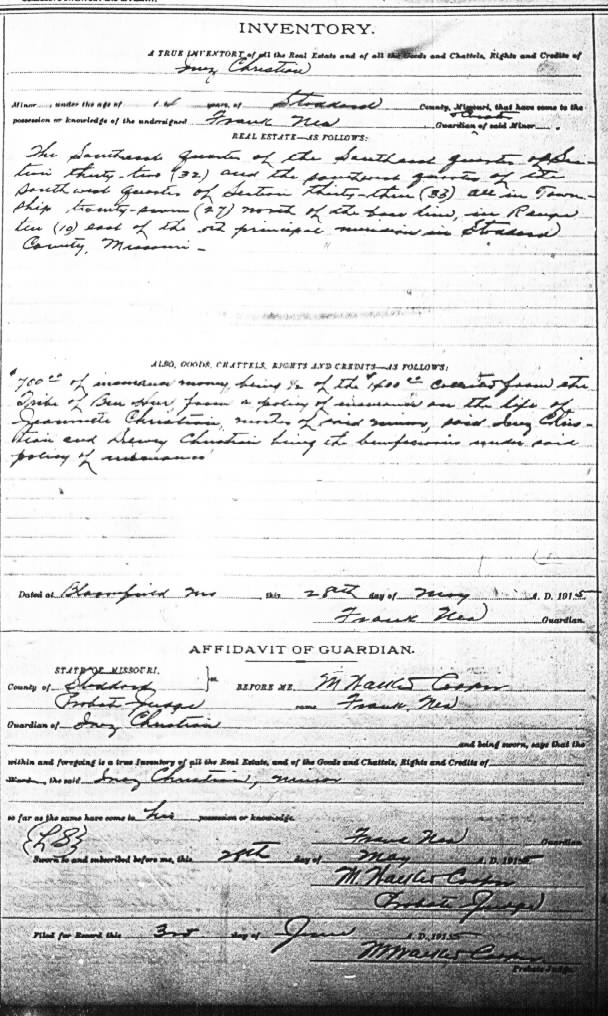 INVENTORY.
A TRUE INVENTORY of all the Real Estate and of all the Goods and Chattels, Rights and Credits of
Inez Christian
Minor, under the age of 14 years, of Stoddard County, Missouri, that have come to the
possession or knowledge of the undersigned Frank Nea Guardian of said Minor
REAL ESTATE—AS FOLLOWS:
The Southeast quarter of the Southeast quarter of Sec-
tion thirty-two (32) and the southwest quarter of the
Southwest quarter of Section thirty-three (33) all in Town-
ship twenty-seven (27) north of the base line, in Range
ten (10) east of the 5th principal meridian in Stoddard
County, Missouri -
ALSO, GOODS, CHATTELS, RIGHTS AND CREDITS—AS FOLLOWS:
$700.00 of insurance money being 1/2 of the $1400.00 collected from the
Tribe of Ben Hur, from a policy of insurance on the life of
Christian, mother of said minor, said Inez Chris-
tian and Dewey Christian being the beneficiaries under said
policy of insurance
Dated at Bloomfield Mo this 28th day of May A. D. 1915
Frank Nea Guardian.
AFFIDAVIT OF GUARDIAN.
STATE OF MISSOURI,
County of Stoddard ss. BEFORE ME, M Walker Cooper
Probate Judge came Frank Nea
Guardian of Inez Christian
and being sworn, says that the
within and foregoing is a true Inventory of all the Real Estate, and of the Goods and Chattels, Rights and Credits of
Ward, the said Inez Christian, minor
so far as the same have come to his possession or knowledge.
{LS} Frank Nea Guardian
Sworn to and subscribed before me, this 28th day of May A. D. 1915
M. Walker Cooper
Probate Judge
Filed for Record this 3rd day of June A. D. 1915
M Walker Cooper
Probate Judge.